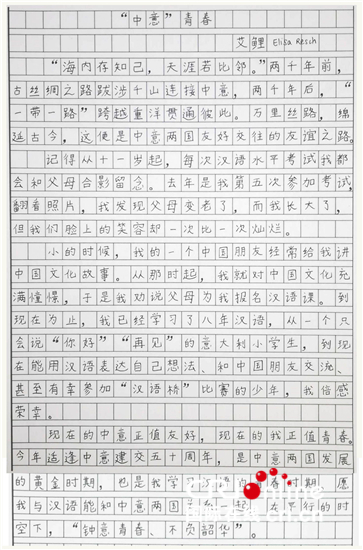 “中意”青春
艾鲤 Elisa Resch
“海内存知己，天涯若比邻。”两千年前，
古丝绸之路跋涉千山连接中意，两千年后，“
一带一路”跨越重洋贯通彼此。万里丝路，绵
延古今，这便是中意两国友好交往的友谊之路。
记得从十一岁起，每次汉语水平考试我都
会和父母合影留念。去年是我第五次参加考试，
翻看照片，我发现父母变老了，而我长大了，
但我们脸上的笑容却一次比一次灿烂。
小的时候，我的一个中国朋友经常给我讲
中国文化故事。从那时起，我就对中国文化充
满憧憬，于是我劝说父母为我报名汉语课。到
现在为止，我已经学习了八年汉语，从一个只
会说“你好”“再见”的意大利小学生，到现
在能用汉语表达自己想法、和中国朋友交流、
甚至有幸参加“汉语桥”比赛的少年，我倍感
荣幸。
现在的中意正值友好，现在的我正值青春。
今年适逢中意建交五十周年，是中意两国发展
的黄金时期，也是我学习汉语的青春时期，愿
我与汉语能和中意两国一起，在平行的时
空下，“钟意青春、不负韶华”。